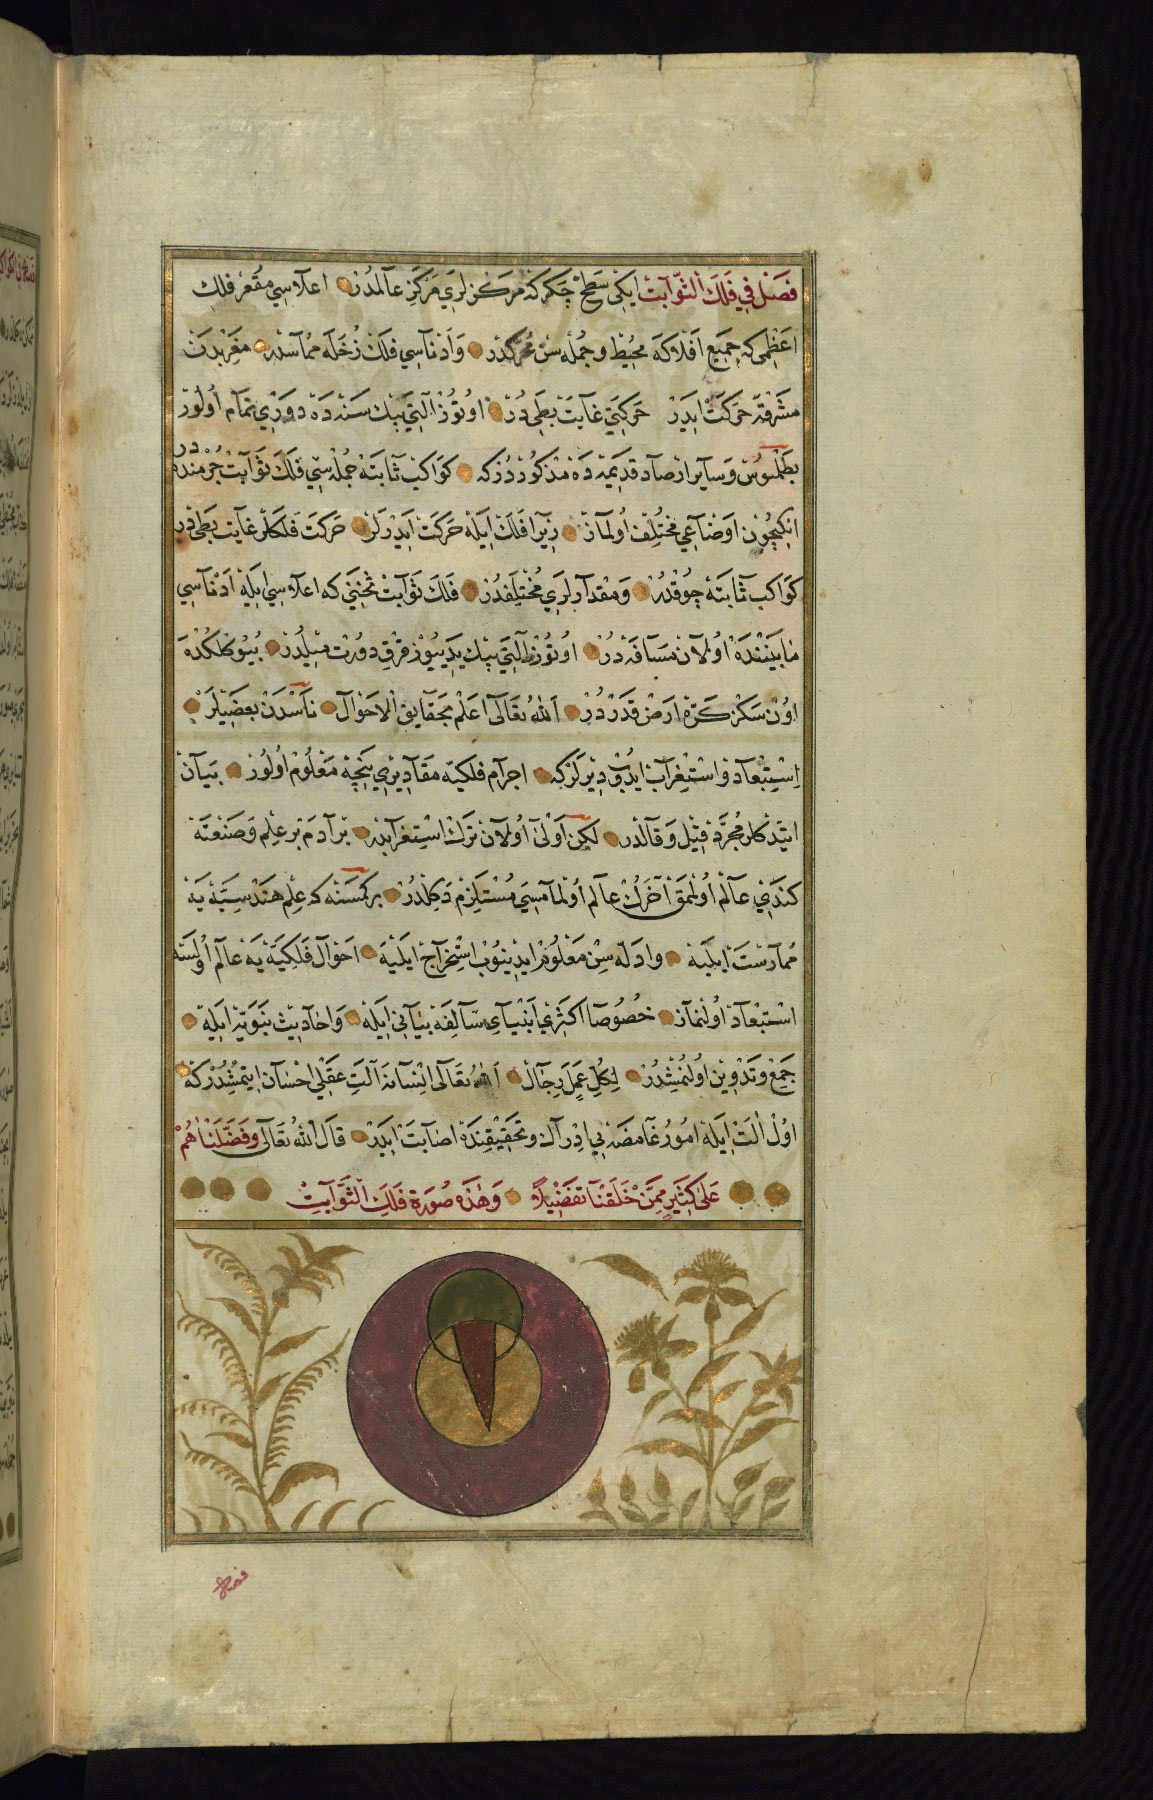 فصل في فلك الثوابت ايكى سطح چكر كه مركزلرى مركز عالمدر اعلاسى مقعر فلك
اعظمى كه جميع افلاكه محيط و جمله سن محركدر و ادناسى فلك زحله مماسدر مغربدن
مشرقه حركت ايدر حركتى غايت بطى در اوتوز التى بيك سنه ده دورى تمام اولور
بطلميوس و ساير ارصاد قديمه ده مذكور دركه كواكب ثابته جمله سى فلك ثوابت جرمنده در
انكيچون اوضاعى مختلف اولماز زيرا فلك ايله حركت ايدرلر حركت فلكلر غايت بطى در
كواكب ثابته چوقدر و مقدارلرى مختلفدر فلك ثوابت ثخنى كه اعلاسى ايله ادناسى
مابيننده اولان مسافه در اوتوز التى بيك يدييوز قرق دورت ميلدر بيوكلكده
اون سكز كره ارض قدردر الله تعالى اعلم بحقايق الاحوال ناسدن بعضيلر
استبعاد و استغراب ايدوب ديرلركه اجرام فلكيه مقاديرى نيچه معلوم اولور بيان
ايتدكلر مجرد قيل و قالدر لكن اولى اولان ترك استغرابدر بر آدم بر علم و صنعته
كندى عالم اولمق آخرك عالم اولمامسى مستلزم دكلدر بر كمسنه كه علم هندسيه يه
ممارست ايليه و ادله سن معلوم ايدينوب استخراج ايليه احوال فلكيه يه عالم اولسه
استبعاد اولنماز خصوصا اكثرى انبياى سالفه بيانى ايله و احاديث نبويه ايله
جمع و تدوين اولنمشدر لكل عمل رجال الله تعالى انسانه آلت عقلى احسان ايتمشدركه
اول الت ايله امور غامضه يى ادراك و تحقيقنده اصابت ايدر قال الله تعالى وفضلناهم
على كثير ممن خلقنا تفضيلا وهذه صورة فلك الثوابت
فصل